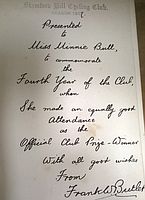 Stamford Hill Cycling Club.
Presented
to
Miss Minnie Bull,
to commemorate
the
Fourth Year of the Club,
when
She made an equally good
Attendance
as the
Official Club Prize-Winner
With all good wishes
From
Frank W Butler